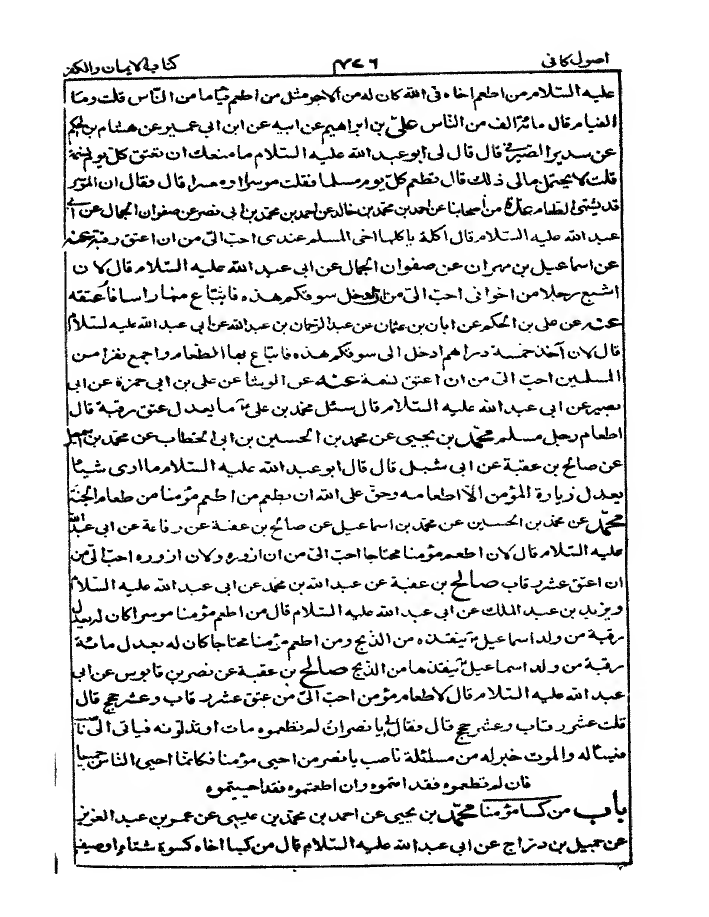 اصول كافى ٤٢٦ كتاب الايمان والكفر
عليه السلام من اطعم اخاه فى الله كان له من الاجر مثل من اطعم فئاما من الناس قلت وما
الفئام قال مائة الف من الناس على بن ابراهيم عن ابيه عن ابن ابى عمير عن هشام بن الحكم
عن سدير الصيرفى قال قال لى ابو عبد الله عليه السلام ما منعك ان تعتق كل يوم نسمة
قلت لا يحتمل مالى ذلك قال تطعم كل يوم مسلما فقلت موسرا او معسرا قال فقال ان الموسر
قد يشتهى الطعام عدة من اصحابنا عن احمد بن محمد بن خالد عن احمد بن محمد بن ابى نصر عن صفوان الجمال عن ابى
عبد الله عليه السلام قال اكلة ياكلها اخى المسلم عندى احب الى من ان اعتق رقبة عنه
عن اسماعيل بن مهران عن صفوان الجمال عن ابى عبد الله عليه السلام قال لان
اشبع رجلا من اخوانى احب الى من ان ادخل سوقكم هذه فابتاع منها راسا فاعتقه
عنه عن على بن الحكم عن ابان بن عثمان عن عبد الرحمان بن عبد الله عن ابى عبد الله عليه لسلام
قال لان آخذ خمسة دراهم ادخل الى سوقكم هذه فابتاع بها الطعام واجمع نفرا من
المسلمين احب الى من ان اعتق نسمة عنه عن الوشا عن على بن ابى حمزة عن ابى
بصير عن ابى عبد الله عليه السلام قال سئل محمد بن على ما يعدل عتق رقبة قال
اطعام رجل مسلم محمد بن يحيى عن محمد بن الحسين بن ابى الخطاب عن محمد بن اسمعيل
عن صالح بن عقبة عن ابى شبل قال قال ابو عبد الله عليه السلام ما ارى شيئا
يعدل زيارة المؤمن الا اطعامه وحق على الله ان يطعم من اطعم مؤمنا من طعام الجنة
محمد عن محمد بن الحسين عن محمد بن اسماعيل عن صالح بن عقبة عن رفاعة عن ابى عبد الله
عليه السلام قال لان اطعم مؤمنا محتاجا احب الى من ان ازوره ولان ازوره احب الى من
ان اعتق عشر رقاب صالح بن عقبة عن عبد الله بن محمد عن ابى عبد الله عليه السلام
ويزيد بن عبد الملك عن ابى عبد الله عليه السلام قال من اطعم مؤمنا موسرا كان له يعدل
رقبة من ولد اسماعيل ينقذه من الذبح ومن اطعم مؤمنا محتاجا كان له يعدل مائة
رقبة من ولد اسماعيل ينقذها من الذبح صالح بن عقبة عن نصر بن قابوس عن ابى
عبد الله عليه السلام قال لاطعام مؤمن احب الى من عتق عشر رقاب وعشر حجج قال
قلت عشر رقاب وعشر حجج قال فقال يا نصر ان لم تطعموه مات او تدلونه فياتى الى ناصب
فيسأله والموت خير له من مسئلة ناصب يا نصر من احيى مؤمنا فكانما احيى الناس جميعا
فان لم تطعموه فقد امتموه وان اطعمتموه فقد احييتموه
باب من كسا مؤمنا محمد بن يحيى عن احمد بن محمد بن عيسى عن عمر بن عبد العزيز
عن جميل بن دراج عن ابى عبد الله عليه السلام قال من كسا اخاه كسوة شتاء او صيف